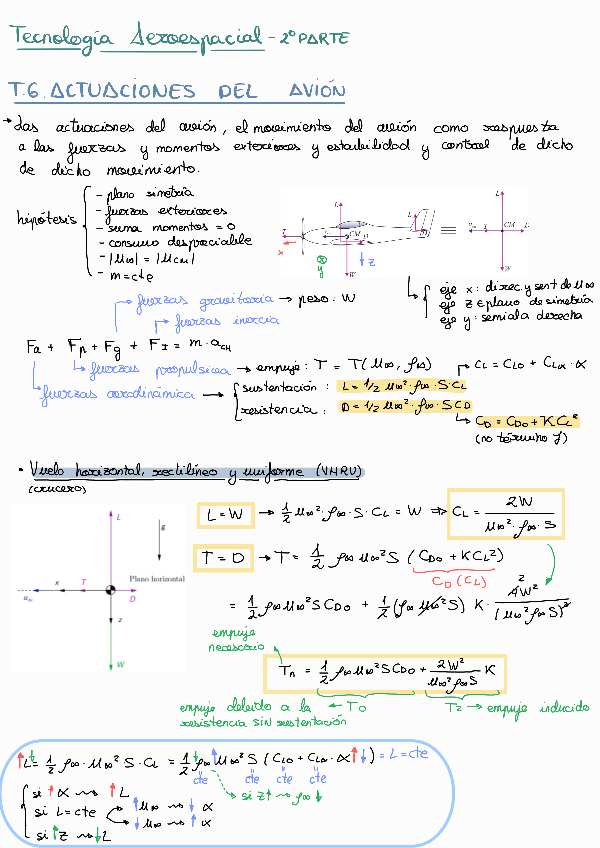 Tecnología Aeroespacial - 2º PARTE
T.6. ACTUACIONES DEL AVIÓN
→ Las actuaciones del avión, el movimiento del avión como respuesta
a las fuerzas y momentos exteriores y estabilidad y control de dicho
de dicho movimiento.
hipótesis
- plano simetría
- fuerzas exteriores
- suma momentos = 0
- consumo despreciable
- |u∞| = |uCM|
- m = cte
L T CM D W x y z L D
≡
L u∞ x CM D W
eje x: direc. y sent de u∞
eje z e plano de simetría
eje y: semiala derecha
→ fuerzas gravitoria → peso: W
→ fuerzas inercia
Fa + Fp + Fg + FI = m · aCM
→ fuerzas propulsivas → empuje: T = T(u∞, ρ∞)
→ CL = CL0 + CLα · α
→ fuerzas aerodinámica →
sustentación: L = 1/2 u∞² · ρ∞ · S · CL
resistencia: D = 1/2 u∞² · ρ∞ · S CD
→ CD = CD0 + KCL²
(no término 1)
• Vuelo horizontal, rectilíneo y uniforme (VHRU)
(crucero)
L g
Plano horizontal
u∞ x T D
z
W
L = W → 1/2 u∞² · ρ∞ · S · CL = W ⇒ CL = 2W / u∞² · ρ∞ · S
T = D → T = 1/2 ρ∞ u∞² S (CD0 + KCL²)
CD (CL)
= 1/2 ρ∞ u∞² S CD0 + 1/2 (ρ∞ u∞² S) K · 4W² / (u∞² ρ∞ S)²
2
empuje
necesario
Tn = 1/2 ρ∞ u∞² S CD0 + 2W² / u∞² ρ∞ S K
empuje debido a la ← T0
resistencia SIN sustentación
T2 → empuje inducido
↑L↓ = 1/2 ρ∞ · u∞² S · CL = 1/2 ρ∞↓ ↑u∞² S (CL0 + CLα · α↑↓) = L = cte
cte cte cte cte
→ si z↑ → ρ∞ ↓
si ↑α → ↑L
si L = cte
↑u∞ → ↓α
↓u∞ → ↑α
si ↑z → ↓L